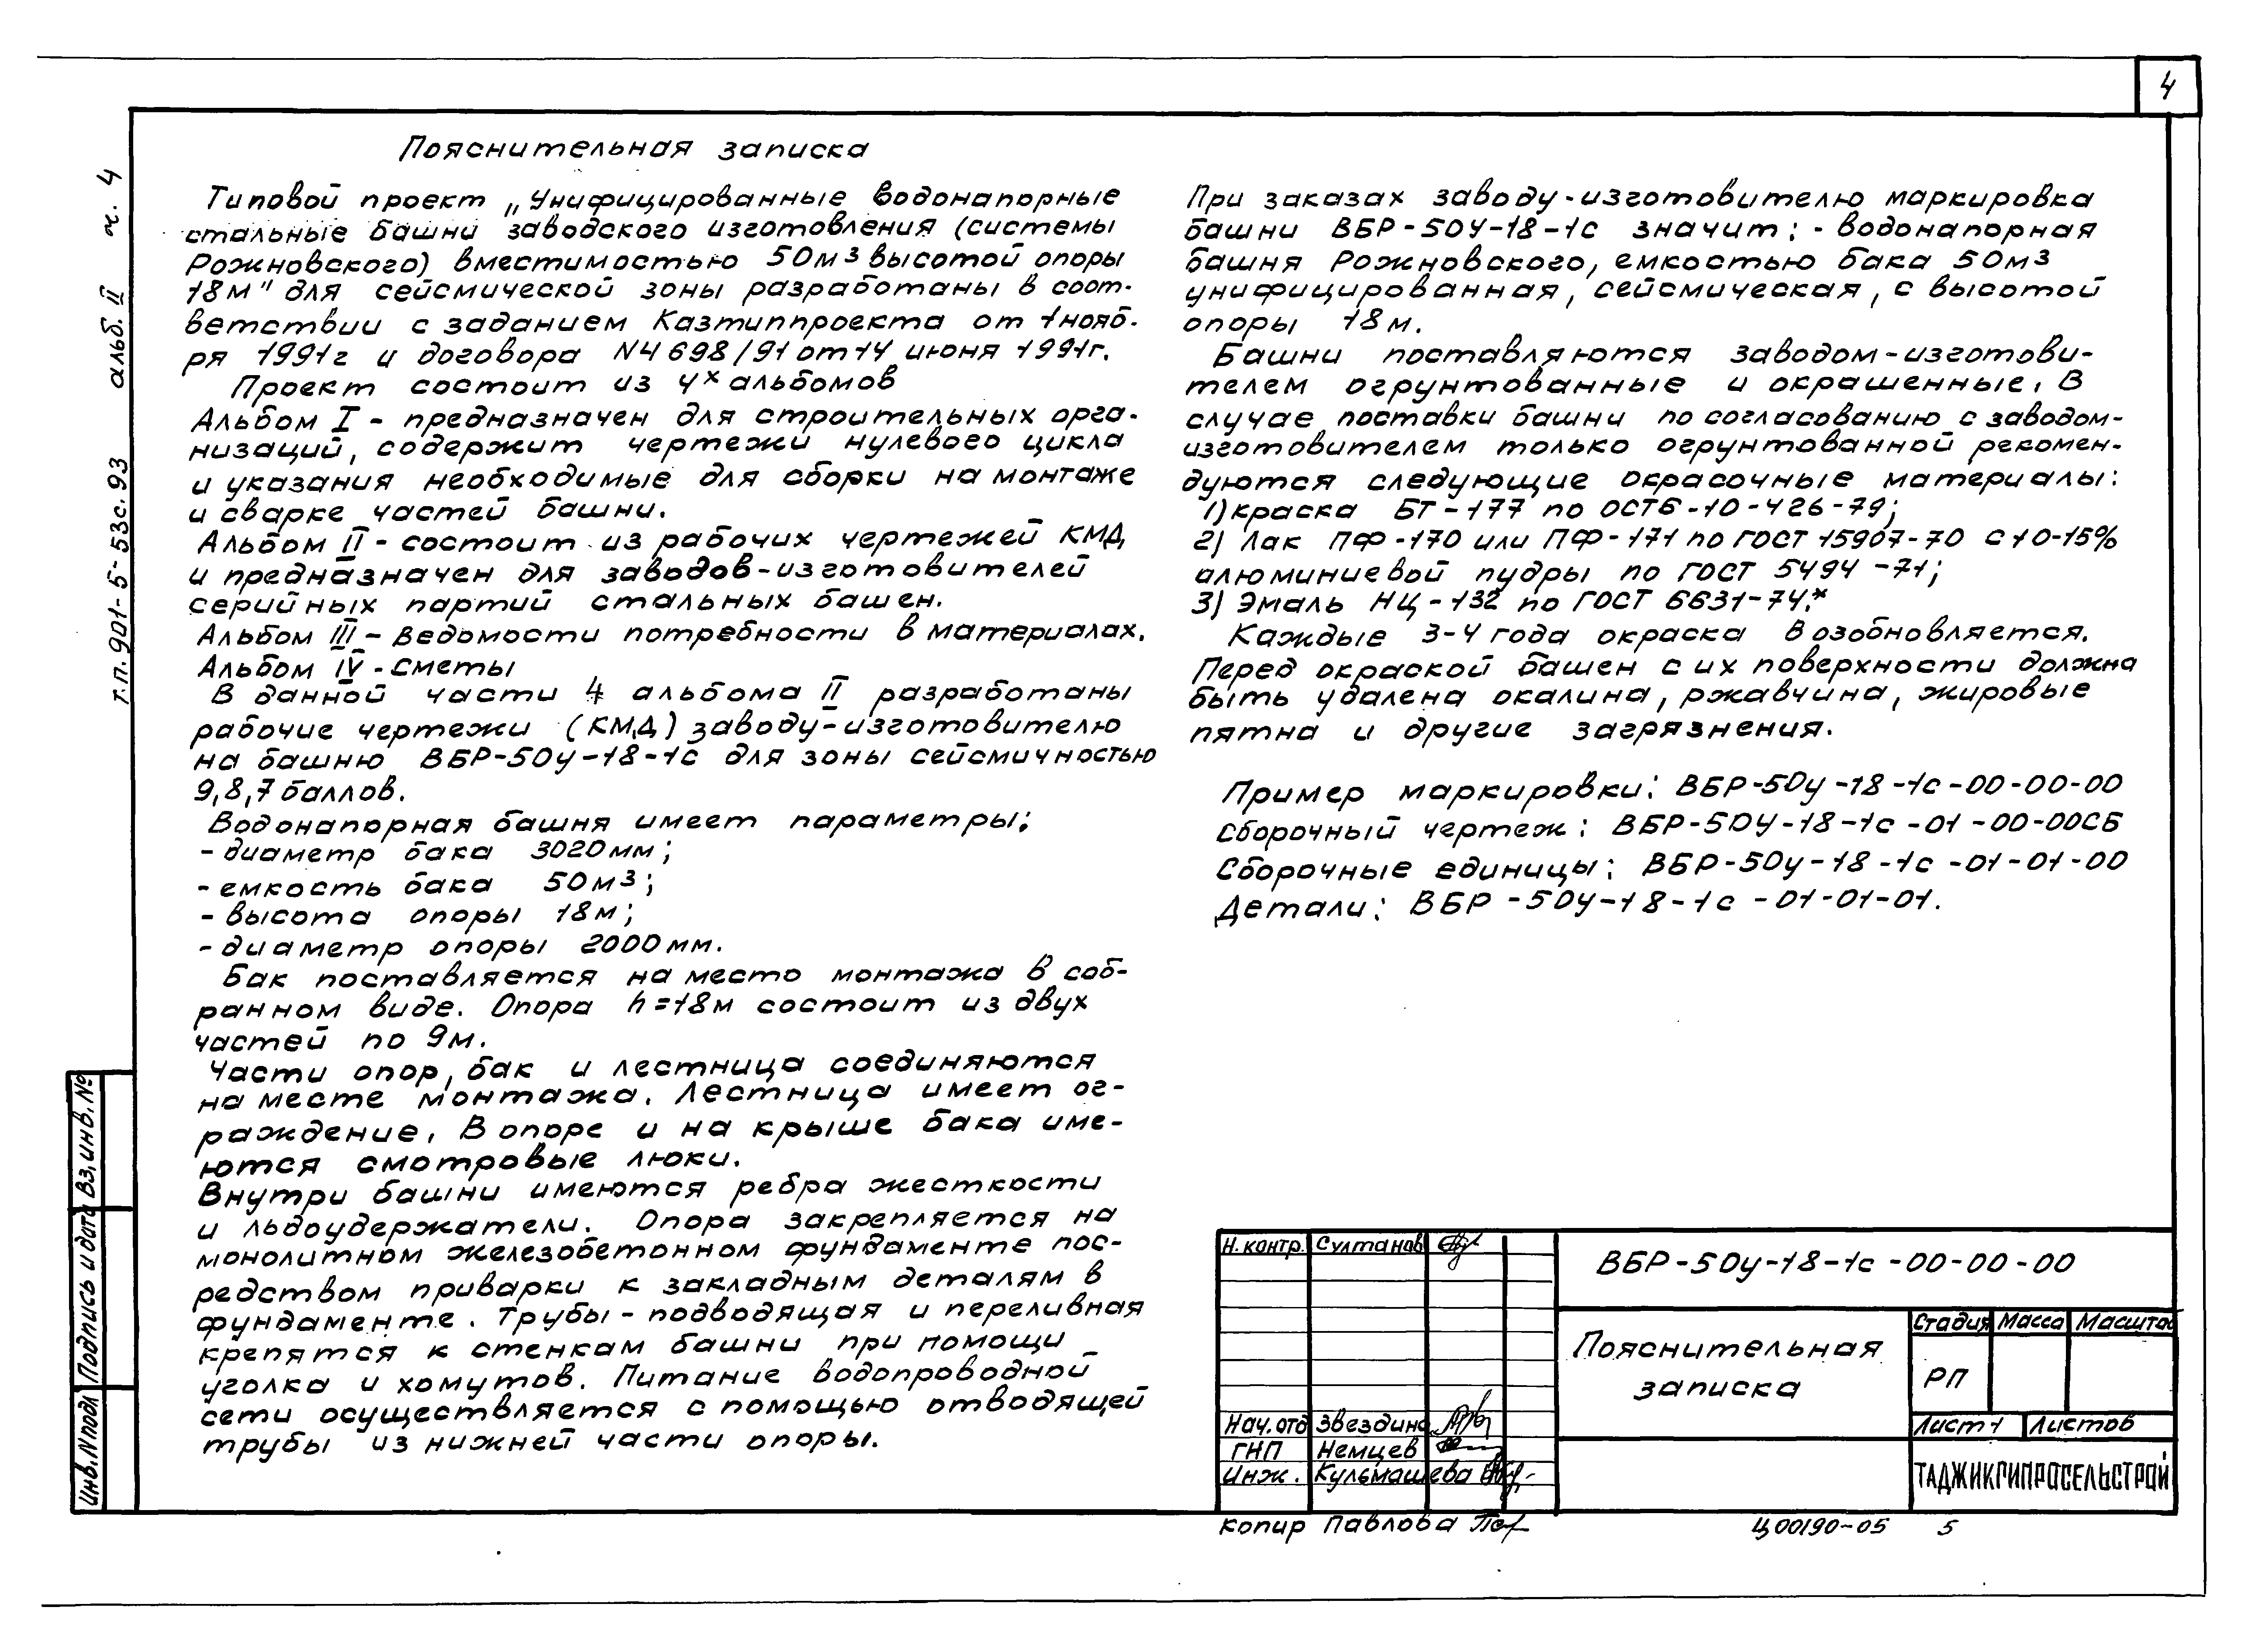 4
т.п. 901-5-53с.93 альб. II ч. 4
Пояснительная записка
Типовой проект „Унифицированные водонапорные
стальные башни заводского изготовления (системы
Рожновского) вместимостью 50м3 высотой опоры
18м" для сейсмической зоны разработаны в соот-
ветствии с заданием Казтиппроекта от 1 нояб-
ря 1991г и договора N4698/91 от 14 июня 1991г.
Проект состоит из 4х альбомов
Альбом I - предназначен для строительных орга-
низаций, содержит чертежи нулевого цикла
и указания необходимые для сборки на монтаже
и сварке частей башни.
Альбом II - состоит из рабочих чертежей КМД
и предназначен для заводов-изготовителей
серийных партий стальных башен.
Альбом III - ведомости потребности в материалах.
Альбом IV - сметы
В данной части 4 альбома II разработаны
рабочие чертежи (КМД) заводу-изготовителю
на башню ВБР-50у-18-1с для зоны сейсмичностью
9,8,7 баллов.
Водонапорная башня имеет параметры:
- диаметр бака 3020мм;
- емкость бака 50м3;
- высота опоры 18м;
- диаметр опоры 2000мм.
Бак поставляется на место монтажа в соб-
ранном виде. Опора h=18м состоит из двух
частей по 9м.
Части опор, бак и лестница соединяются
на месте монтажа. Лестница имеет ог-
раждение. В опоре и на крыше бака име-
ются смотровые люки.
Внутри башни имеются ребра жесткости
и льдоудержатели. Опора закрепляется на
монолитном железобетонном фундаменте пос-
редством приварки к закладным деталям в
фундаменте. Трубы - подводящая и переливная
крепятся к стенкам башни при помощи
уголка и хомутов. Питание водопроводной
сети осуществляется с помощью отводящей
трубы из нижней части опоры.
При заказах заводу-изготовителю маркировка
башни ВБР-50У-18-1с значит: - водонапорная
башня Рожновского, емкостью бака 50м3
унифицированная, сейсмическая, с высотой
опоры 18м.
Башни поставляются заводом-изготови-
телем огрунтованные и окрашенные. В
случае поставки башни по согласованию с заводом-
изготовителем только огрунтованной рекомен-
дуются следующие окрасочные материалы:
1) краска БТ-177 по ОСТ6-10-426-79;
2) Лак ПФ-170 или ПФ-171 по ГОСТ 15907-70 с 10-15%
алюминиевой пудры по ГОСТ 5494-71;
3) Эмаль НЦ-132 по ГОСТ 6631-74.*
Каждые 3-4 года окраска возобновляется.
Перед окраской башен с их поверхности должна
быть удалена окалина, ржавчина, жировые
пятна и другие загрязнения.
Пример маркировки: ВБР-50у-18-1с-00-00-00
Сборочный чертеж: ВБР-50У-18-1с-01-00-00СБ
Сборочные единицы: ВБР-50у-18-1с-01-01-00
Детали: ВБР-50у-18-1с-01-01-01.
Взинв. №
Подпись и дата
Инв. N подл
Н. контр. Султанов
Нач. отд Звездина
ГНП Немцев
Инж. Кульмашева
ВБР-50у-18-1с-00-00-00
Пояснительная
записка
Стадия Масса Масштаб
РП
Лист 1 Листов
ТАДЖИКГИПРОСЕЛЬСТРОЙ
Копир Павлова
Ц00190-05 5